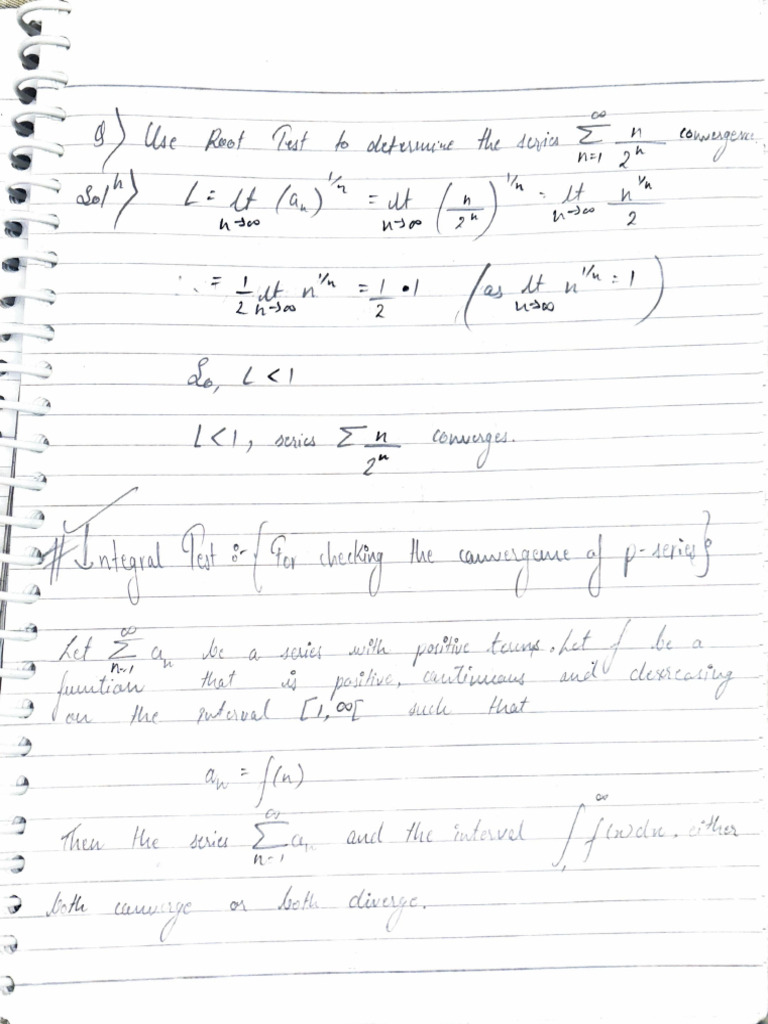 Q) Use Root Test to determine the series ∑_{n=1}^{∞} n/2^n convergence.
Sol^n) L = lt_{n→∞} (a_n)^{1/n} = lt_{n→∞} (n/2^n)^{1/n} = lt_{n→∞} n^{1/n}/2
∴ = 1/2 lt_{n→∞} n^{1/n} = 1/2 • 1 (as lt_{n→∞} n^{1/n} = 1)
So, L < 1
L < 1, series ∑ n/2^n converges.
# Integral Test :- {For checking the convergence of p-series}
Let ∑_{n=1}^{∞} a_n be a series with positive terms. Let f be a
function that is positive, continuous and decreasing
on the interval [1, ∞[ such that
a_n = f(n)
Then the series ∑_{n=1}^{∞} a_n and the interval ∫_1^∞ f(x)dx. either
both converge or both diverge.